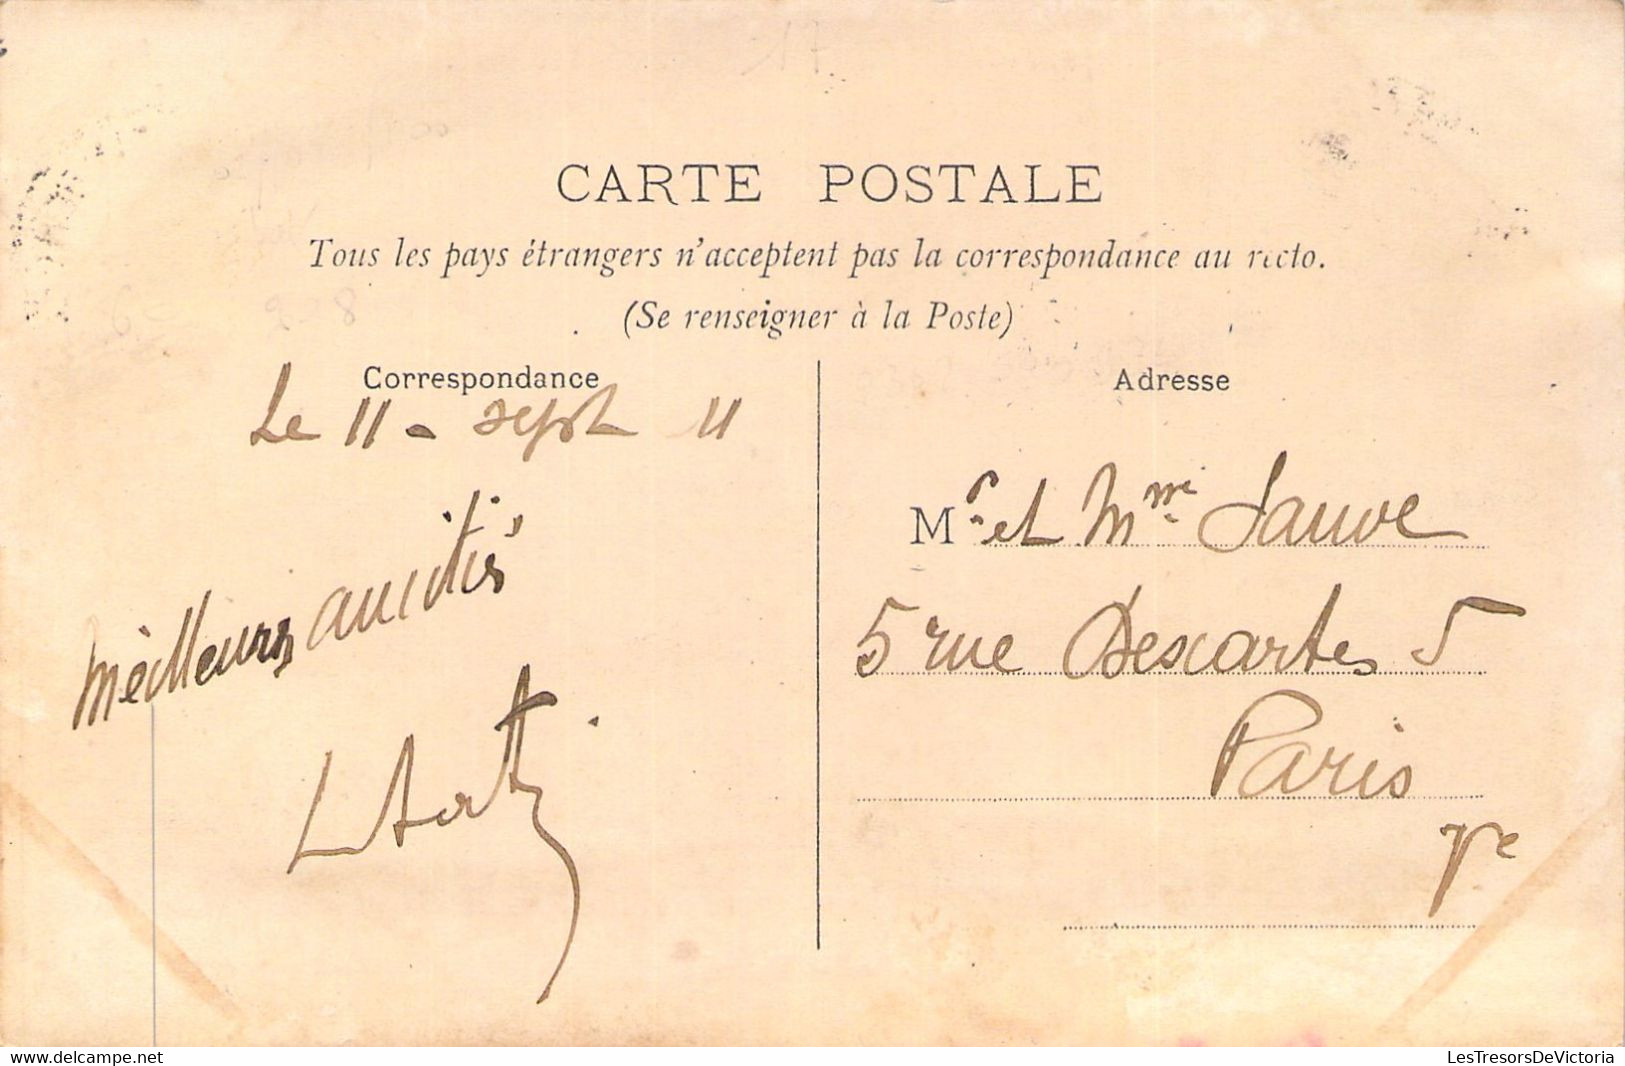 CARTE POSTALE
Tous les pays étrangers n'acceptent pas la correspondance au recto.
(Se renseigner à la Poste)
Correspondance
Le 11 - sept 11
meilleurs amitiés
Adresse
Mr. et Mme. Sauve
5 rue Descartes 5
Paris
Ve
www.delcampe.net
LesTresorsDeVictoria